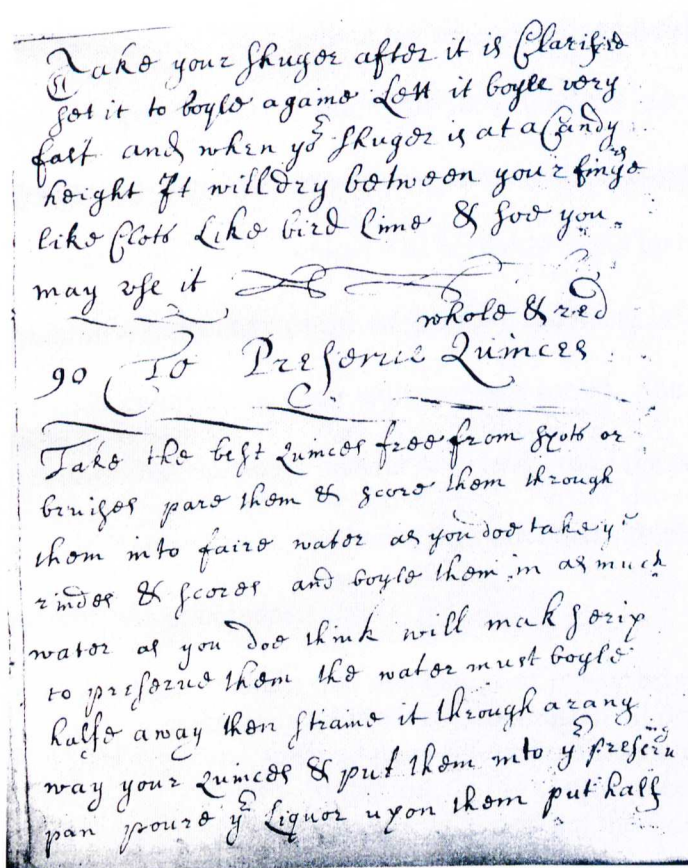 Take your shuger after it is Clarified
set it to boyle againe Lett it boyle very
fast and when yor shuger is at a Candy
height It will dry between your fingrs
like Clots Like bird Lime & soe you
may vse it
whole & red
90 To Preserve Quinces
Take the best Quinces free from spots or
bruises pare them & score them through
them into faire water as you doe take yr
rindes & scores and boyle them in as much
water as you doe think will mak serip
to preserue them the water must boyle
halfe away then straine it through a rang
way your quinces & put them into ye preseruing
pan poure ye Liquor upon them put half